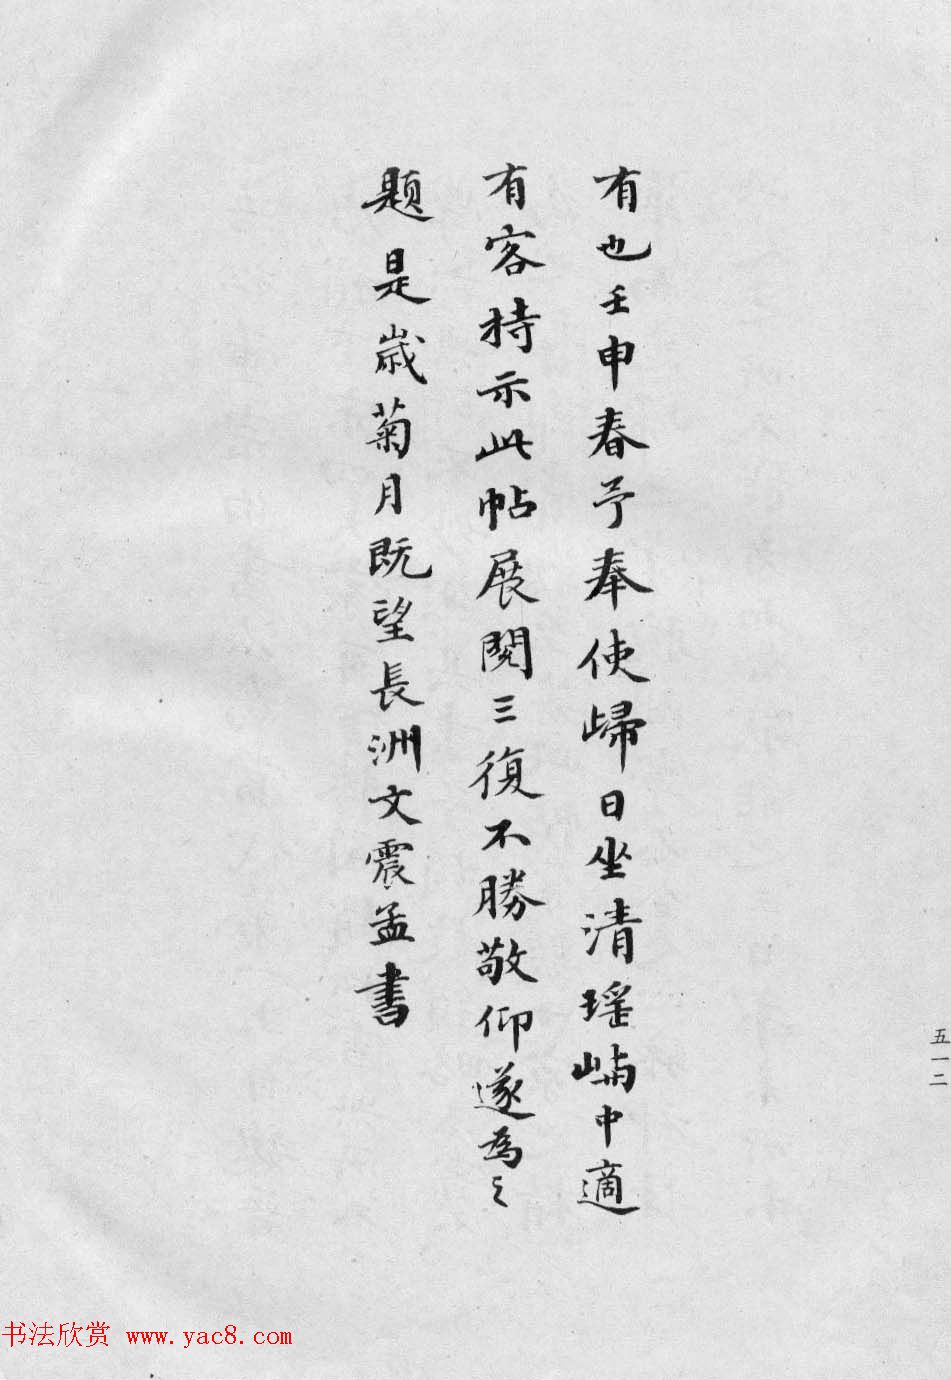 有也壬申春予奉使歸日坐清瑤嶼中適
有客持示此帖展閱三復不勝敬仰遂為之
題是歲菊月既望長洲文震孟書
五一二
书法欣赏 www.yac8.com